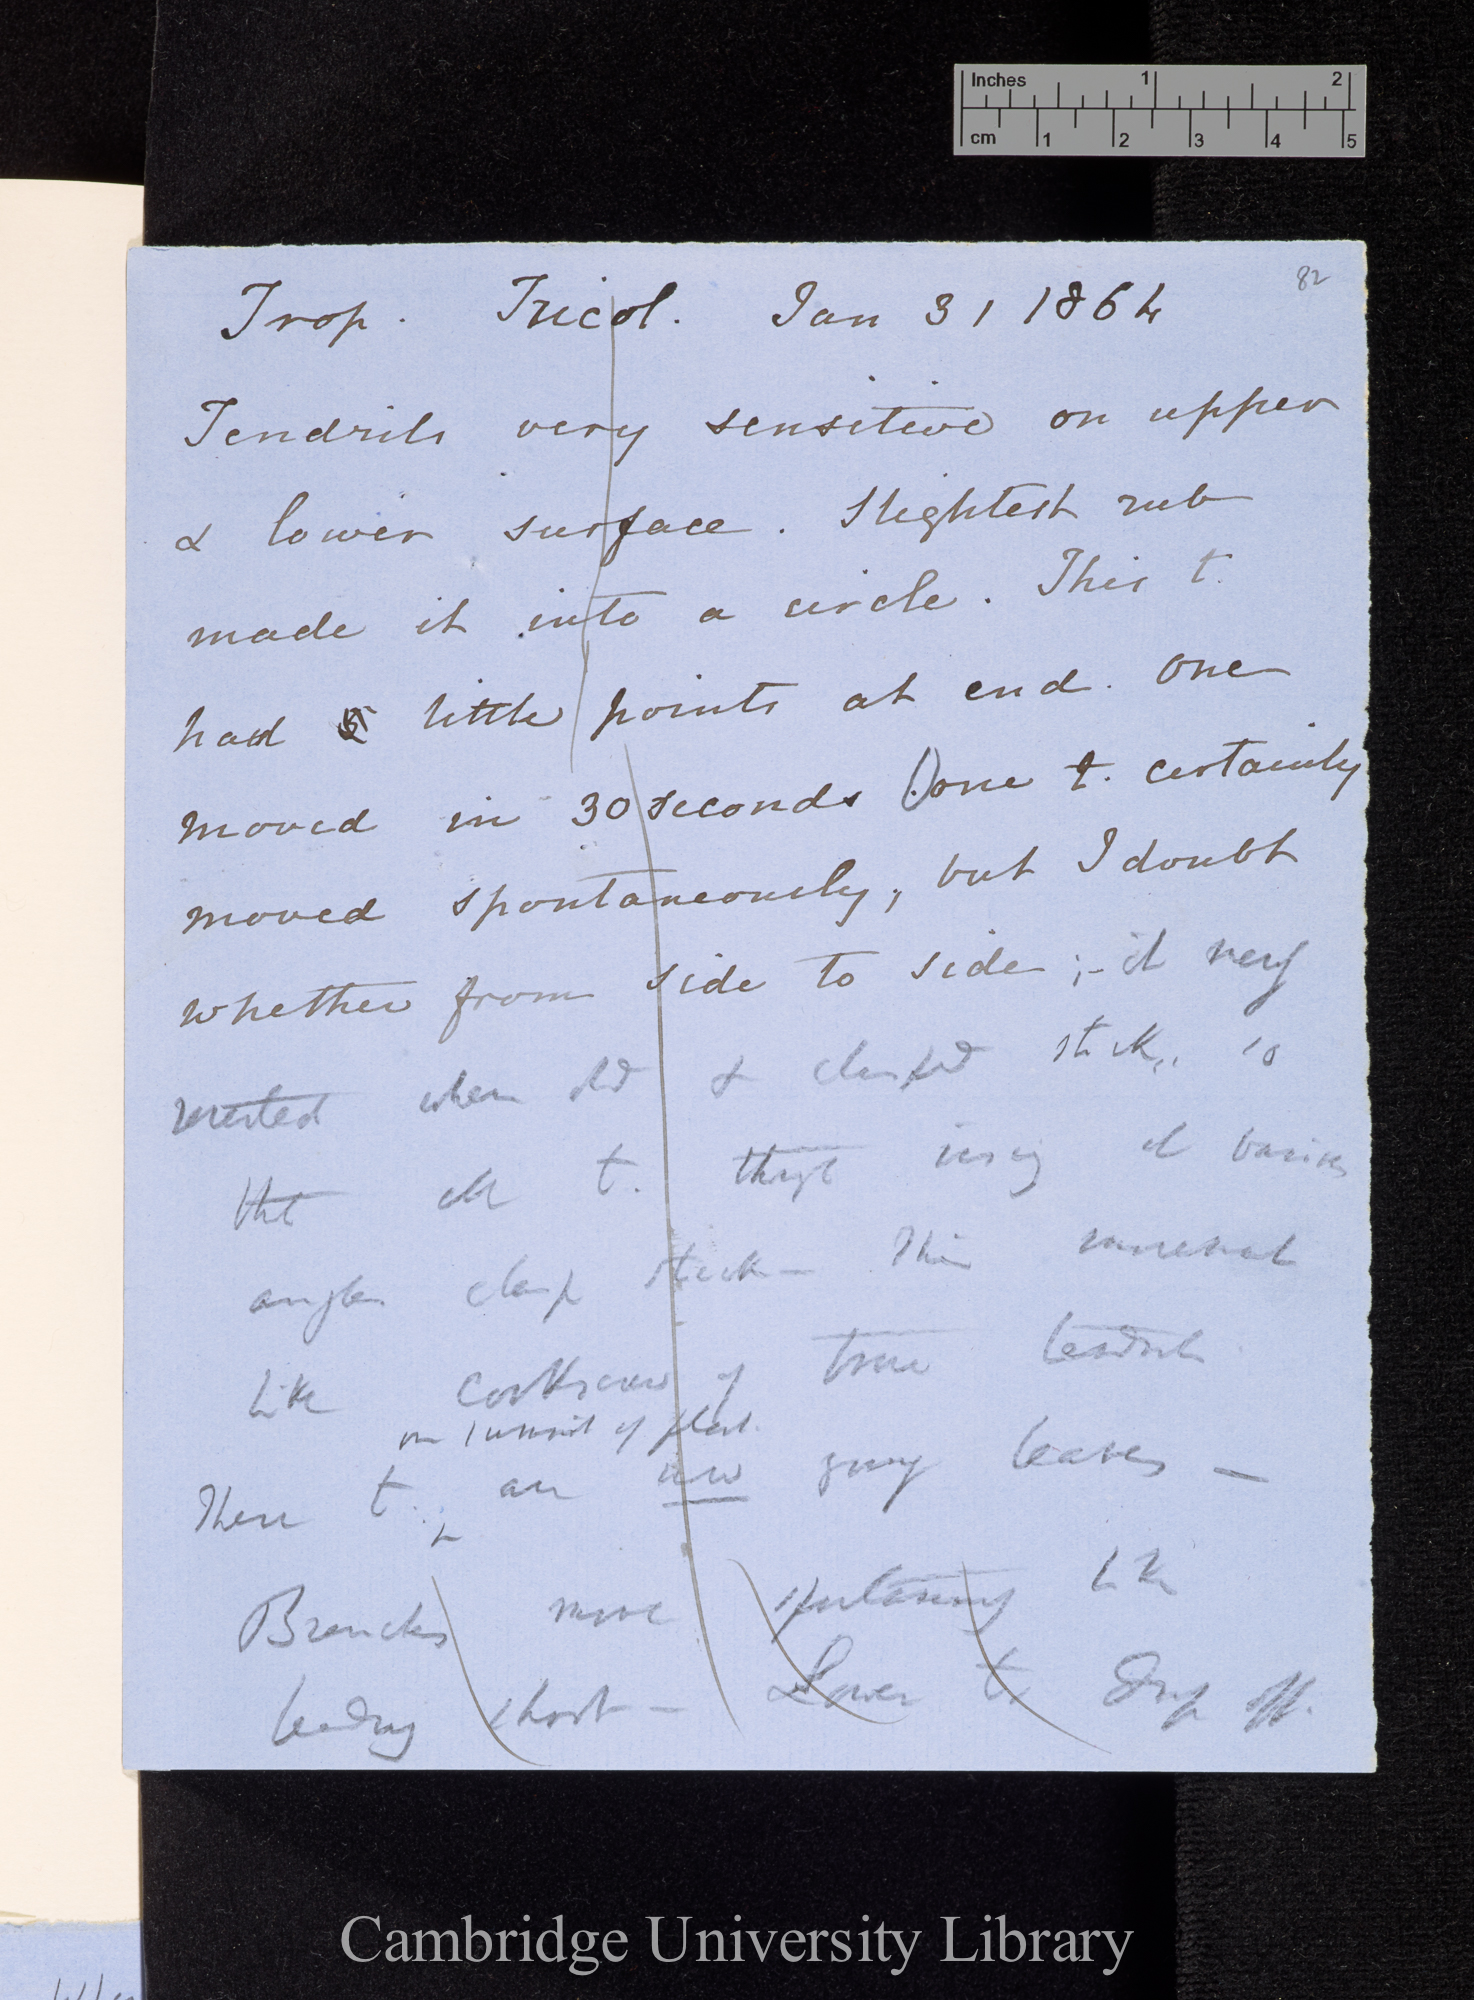 Inches 1 2
cm 1 2 3 4 5
82
Trop. Tricol. Jan 31 1864
Tendrils very sensitive on upper
& lower surface. Slightest rub
made it into a circle. This t.
had 5 little points at end. One
moved in 30 seconds () one t. certainly
moved spontaneously, but I doubt
whether from side to side ;- it very
when old & clasped stick, so
that old t. thus rising at various
angles clasp stick — This somewhat
like corkscrew of true tendril
on summit of plant.
These t. are now young leaves —
Branches move spontaneously like
leading shoot — Lower t. drop off.
Cambridge University Library